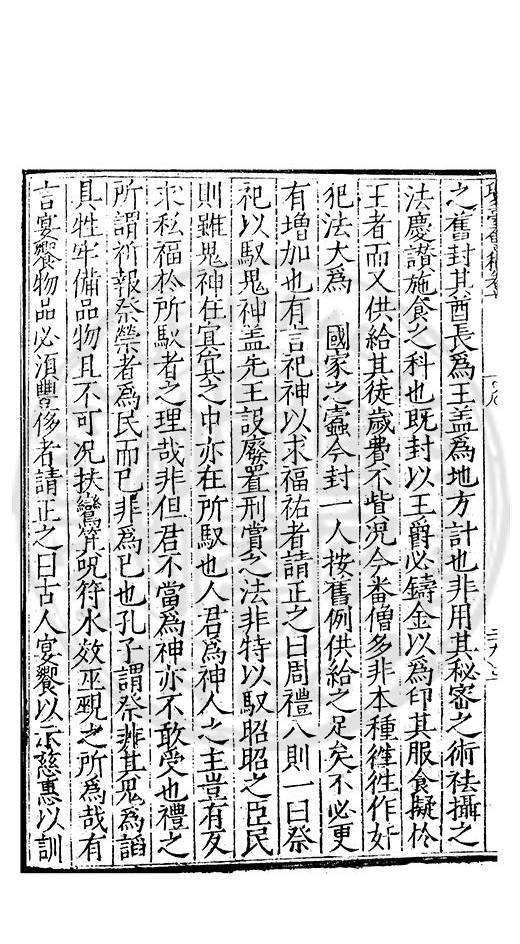 之舊封其酋長爲王盖爲地方計也非用其秘密之術祛攝之
法慶讃施食之科也既封以王爵必鑄金以爲印其服食擬於
王者而又供給其徒歲費不貲况今番僧多非本種徃徃作奸
犯法大爲 國家之蠹今封一人按舊例供給之足矣不必更
有增加也有言祀神以求福祐者請正之曰周禮八則一曰祭
祀以馭鬼神盖先王設廢置刑賞之法非特以馭昭昭之臣民
則雖鬼神在宜宜之中亦在所馭也人君爲神人之主豈有反
求私福於所馭者之理哉非但君不當爲神亦不敢受也禮之
所謂祈報祭禜者爲民而已非爲已也孔子謂祭非其鬼爲謟
具牲牢備品物且不可况扶鸞箕呪符水效巫覡之所爲哉有
言宴饗物品必湏豐侈者請正之曰古人宴饗以示慈惠以訓